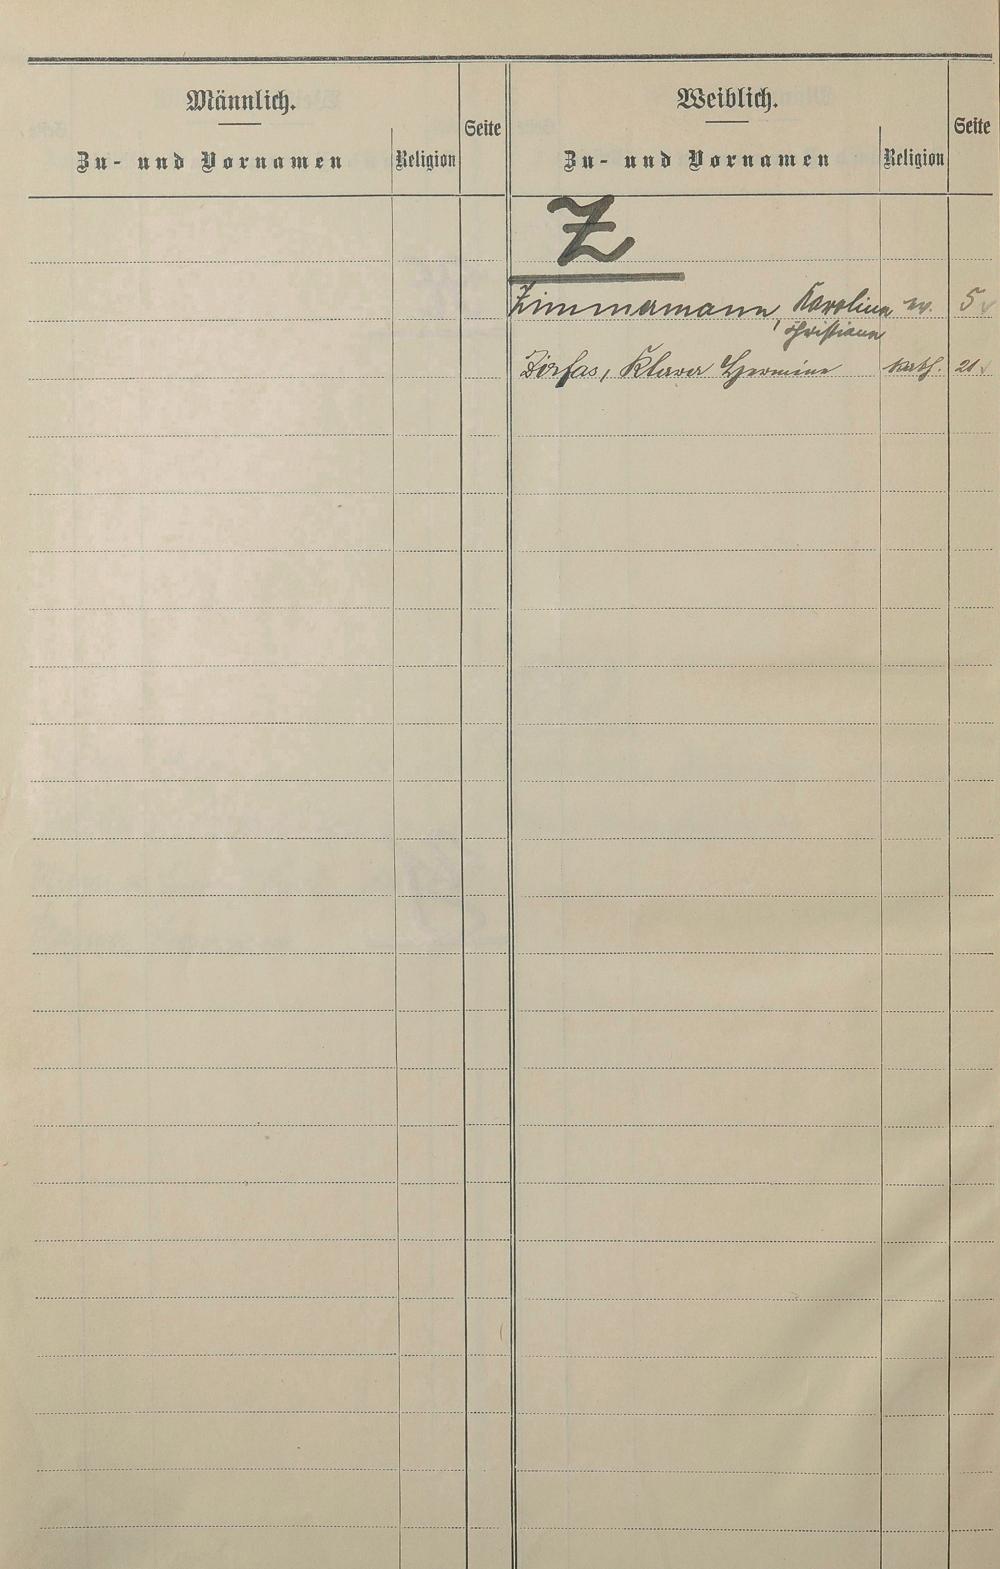 Männlich.
Zu- und Vornamen
Religion
Seite
Weiblich.
Zu- und Vornamen
Religion
Seite
Z
Zimmermann, Karoline ev. 5
Christiane
Zirfas, Klara Hermine kath. 21